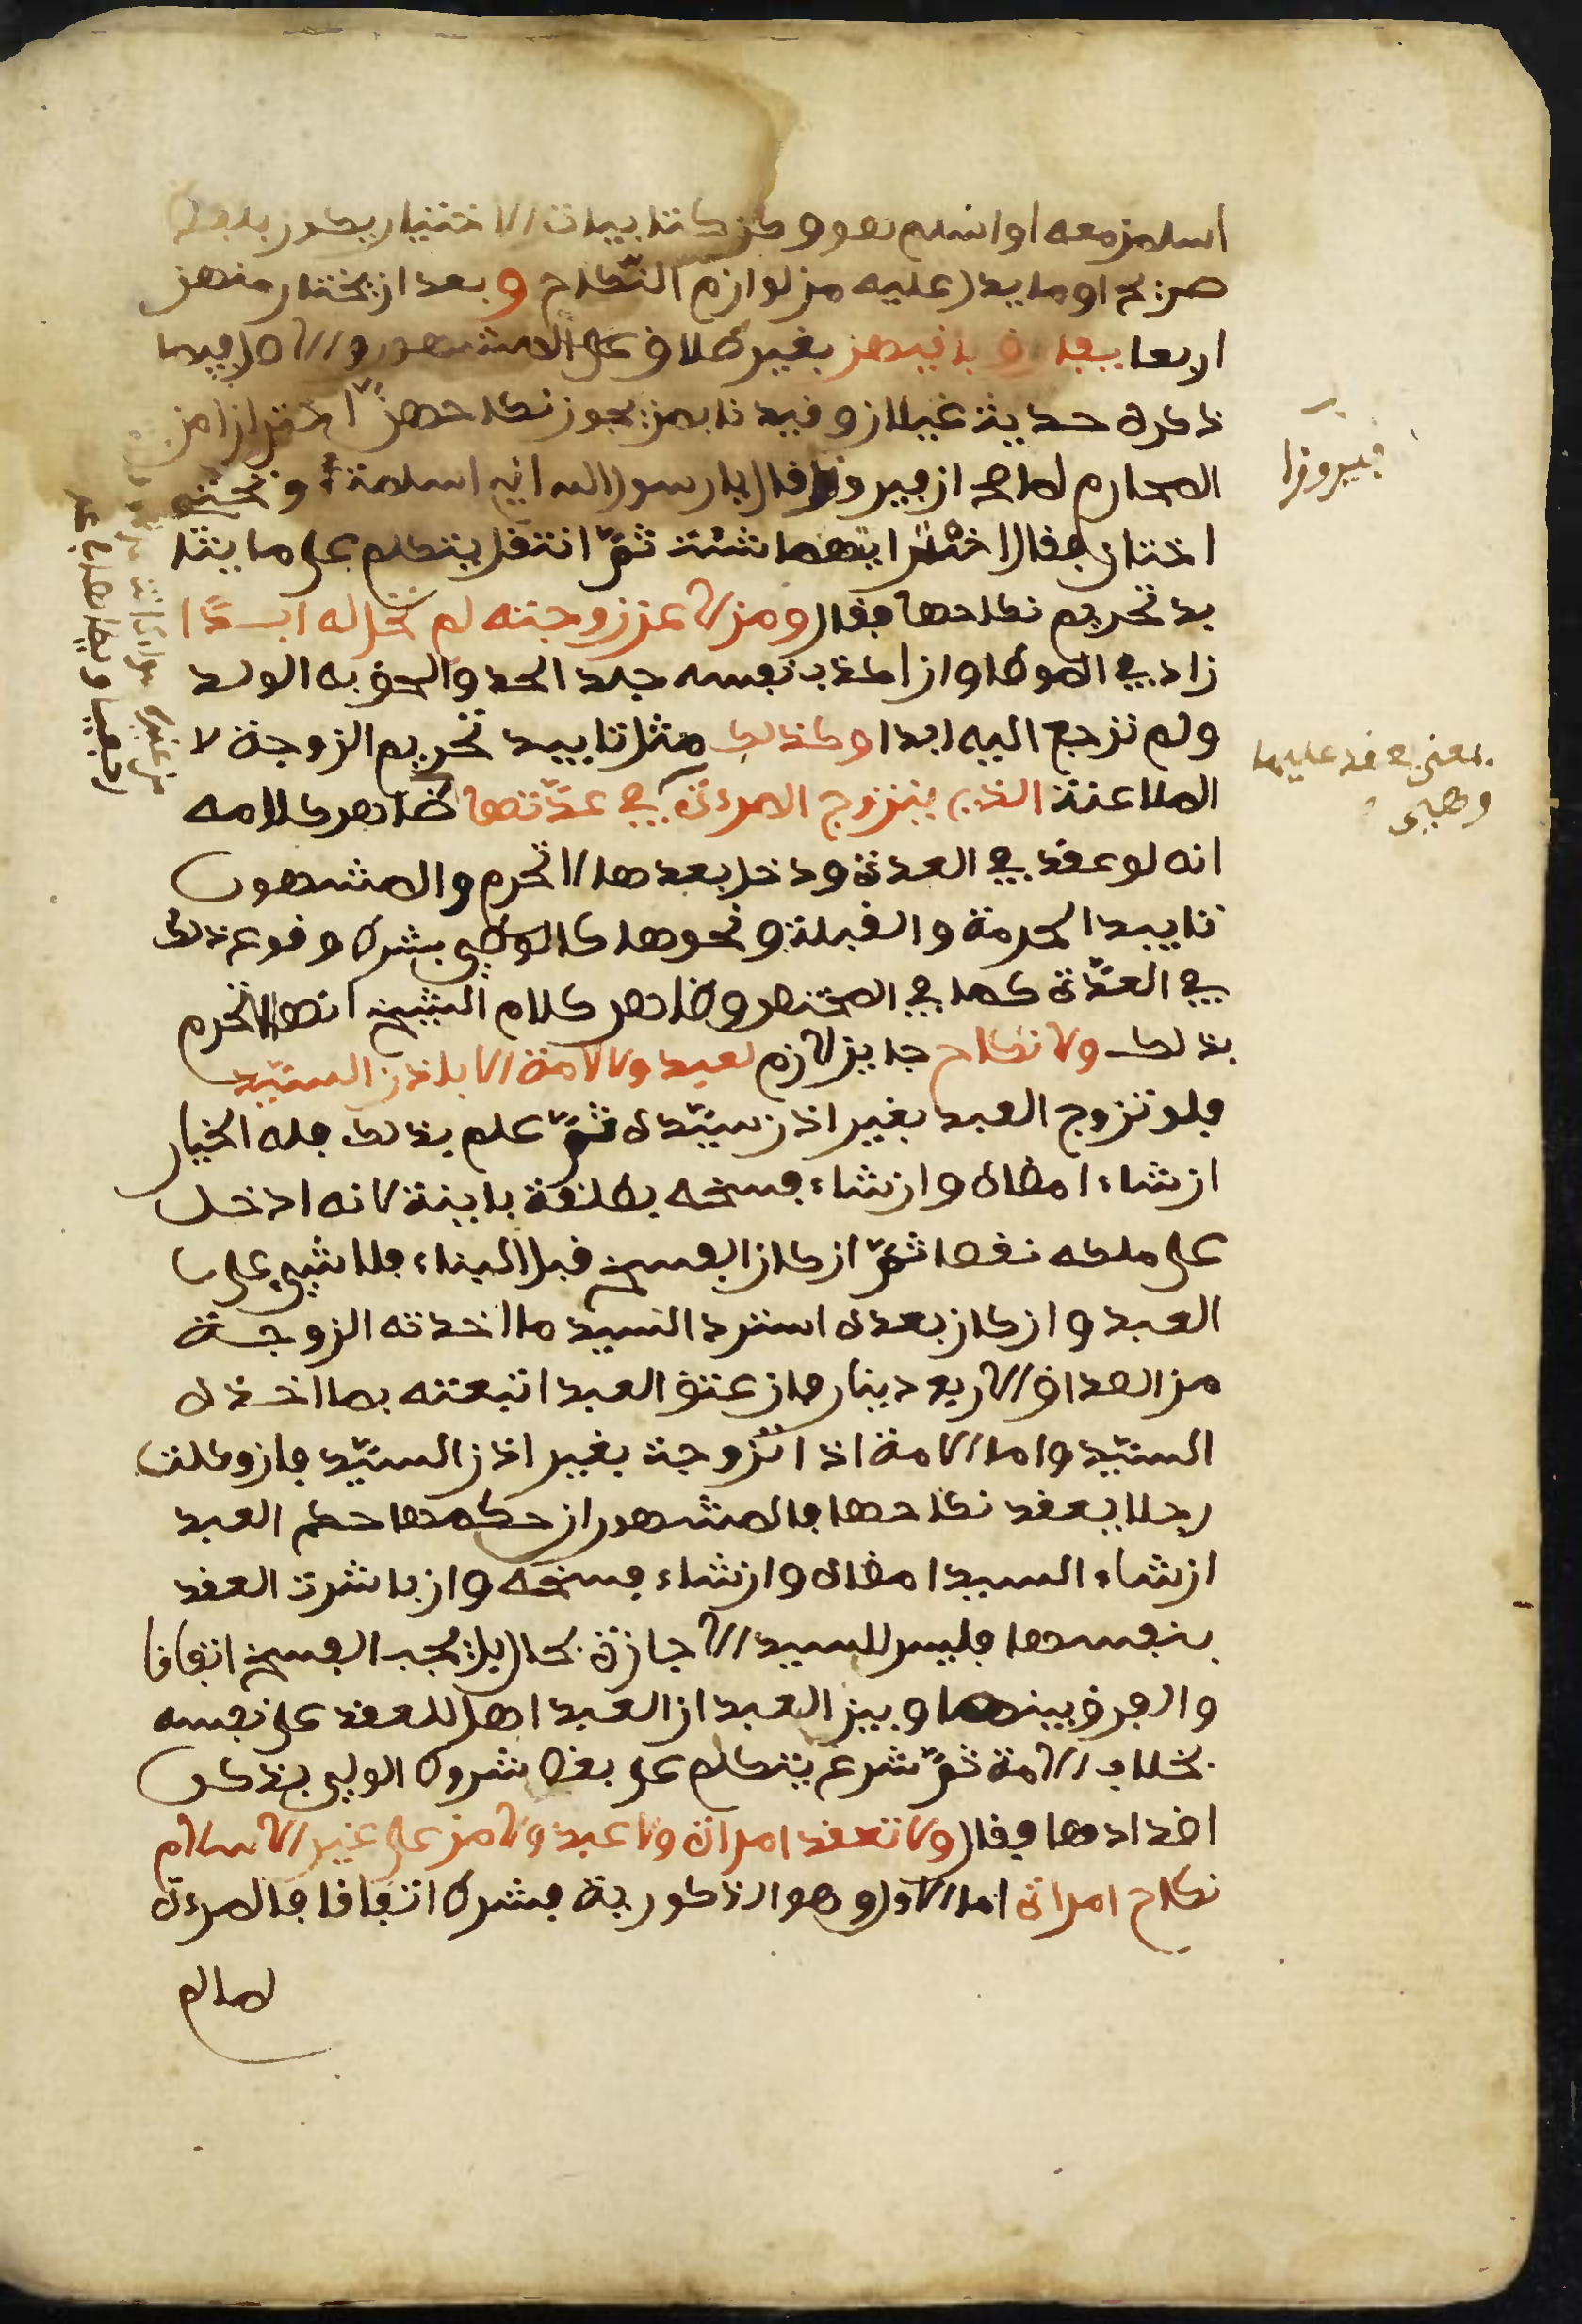 اسلمن معه او اسلم هو وكن كتابيات الاختيار يكون بلفظ
صريح او ما يدل عليه من لوازم النكاح وبعد ان يختار منهن
اربعا يفارق باقيهن بغير طلاق على المشهور والاصل فيما
ذكره حديث غيلان وقيدنا بمن يجوز نكاحهن احترازا من
المحارم لما صح ان فيروزا قال يا رسول الله اني اسلمت وتحتي
اختان فقال اختر ايتهما شئت ثم انتقل يتكلم على ما يتا
بد تحريم نكاحها فقال ومن لاعن زوجته لم تحل له ابدا
زاد في الموطا وان اكذب نفسه جلد الحد والحق به الولد
ولم ترجع اليه ابدا وكذلك مثل تابيد تحريم الزوجة لا
الملاعنة الذي يتزوج المرءة في عدتها ظاهر كلامه
انه لو عقد في العدة ودخل بعدها لا تحرم والمشهور
تابيد الحرمة والقبلة ونحوها كالوطىء بشرط وقوع ذلك
في العدة كما في المختصر وظاهر كلام الشيخ انها لا تحرم
بذلك ولا نكاح جايز لازم لعبد ولا لامة الا باذن السيد
فلو تزوج العبد بغير اذن سيده ثم علم بذلك فله الخيار
ان شاء امضاه وان شاء فسخه بطلقة باينة لانه ادخل
على ملكه نقصا ثم ان كان الفسخ قبل البناء فلا شيء على
العبد وان كان بعده استرد السيد ما اخذته الزوجة
من الصداق الا ربع دينار فان عتق العبد اتبعته بما اخذه
السيد واما الامة اذا تزوجت بغير اذن السيد فان وكلت
رجلا يعقد نكاحها فالمشهور ان حكمها حكم العبد
ان شاء السيد امضاه وان شاء فسخه وان باشرت العقد
بنفسها فليس للسيد الاجازة بحال بل يجب الفسخ اتفاقا
والفرق بينها وبين العبد ان العبد اهل للعقد على نفسه
بخلاف الامة ثم شرع يتكلم على بعض شروط الولي بذكر
اضدادها فقال ولا تعقد امراة ولا عبد ولا من على غير الاسلام
نكاح امراة اما الاول وهو الذكورية فشرط اتفاقا فالمرءة
لما لم
فيروزا
بمعنى يعقد عليها